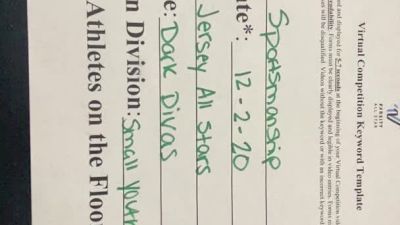 VARSITY
ALL STAR
Virtual Competition Keyword Template
ed and displayed for 5-7 seconds at the beginning of your Virtual Competition vid
readability. Forms must be clearly displayed and legible in video entries. Forms n
ns will be disqualified. Videos without the keyword or with an incorrect keyword
Sportsmanship
ate*: 12-2-20
Jersey All Stars
e: Dark Divas
n Division: Small Youth
Athletes on the Floo